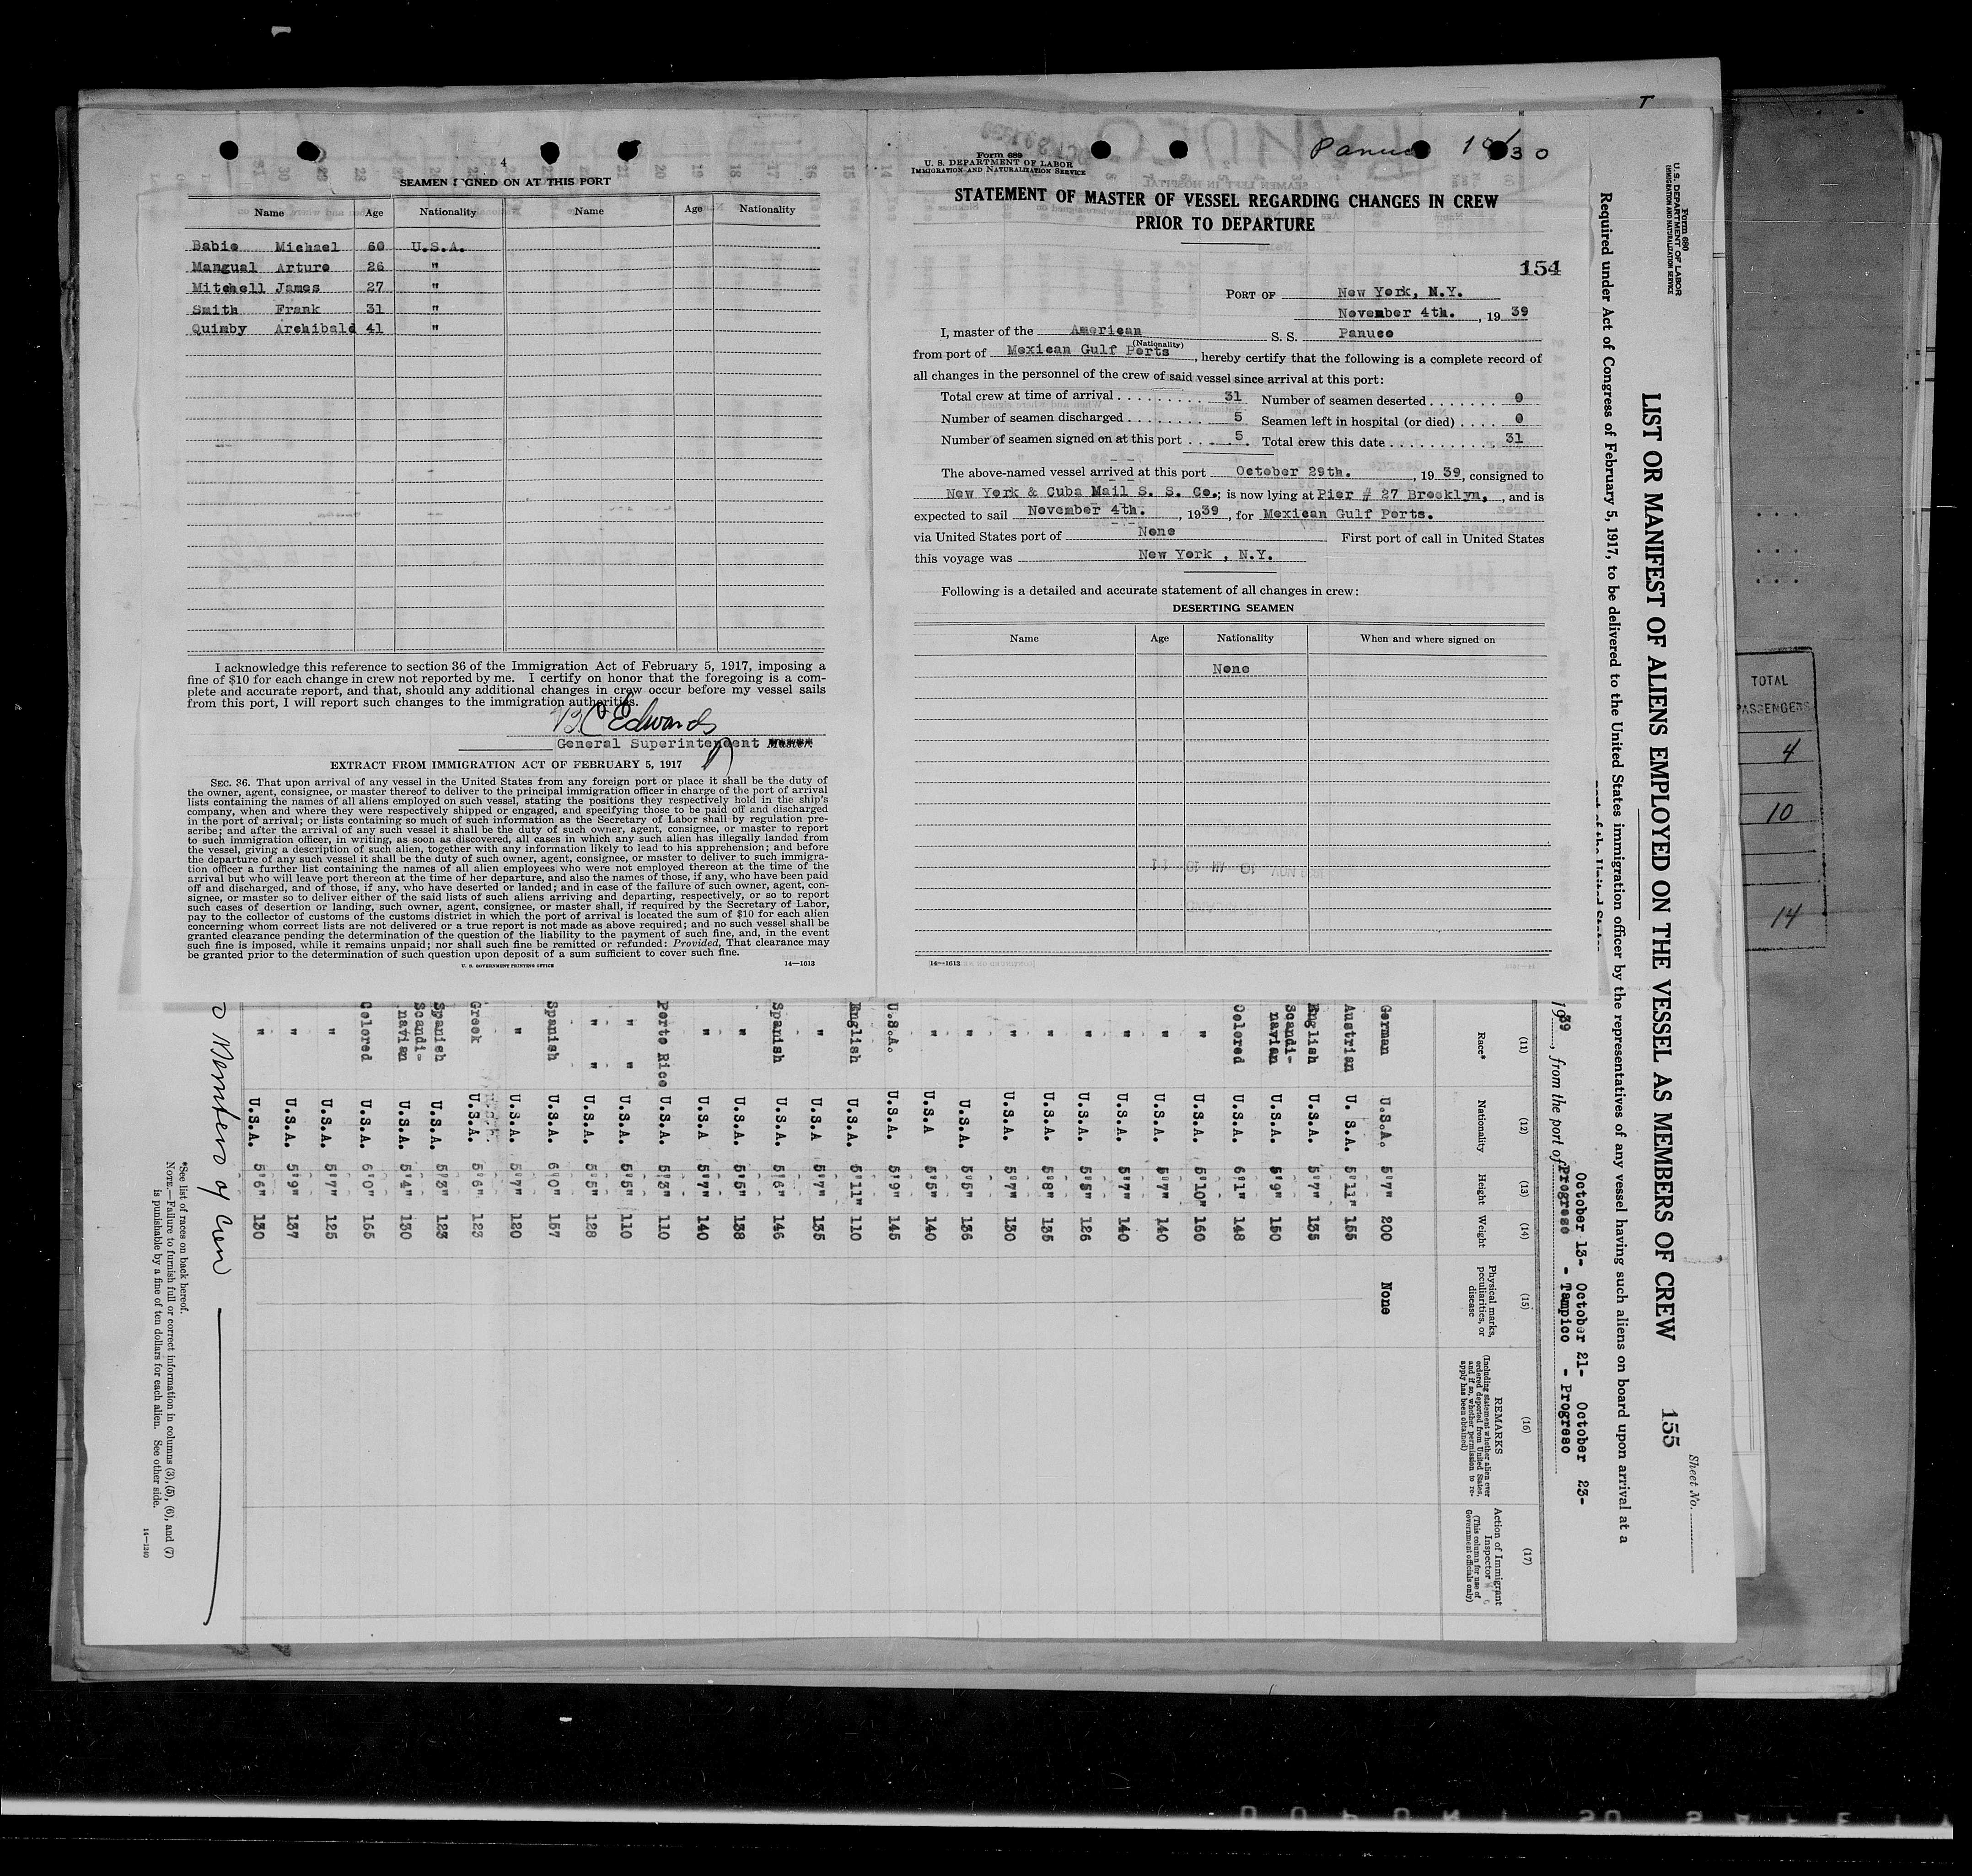 4
SEAMEN SIGNED ON AT THIS PORT
Name Age Nationality Name Age Nationality
Babio Michael 60 U.S.A.
Mangual Arturo 26 "
Mitchell James 27 "
Smith Frank 31 "
Quimby Archibald 41 "
I acknowledge this reference to section 36 of the Immigration Act of February 5, 1917, imposing a
fine of $10 for each change in crew not reported by me. I certify on honor that the foregoing is a com-
plete and accurate report, and that, should any additional changes in crew occur before my vessel sails
from this port, I will report such changes to the immigration authorities.
Edwards
General Superintendent Master
EXTRACT FROM IMMIGRATION ACT OF FEBRUARY 5, 1917
SEC. 36. That upon arrival of any vessel in the United States from any foreign port or place it shall be the duty of
the owner, agent, consignee, or master thereof to deliver to the principal immigration officer in charge of the port of arrival
lists containing the names of all aliens employed on such vessel, stating the positions they respectively hold in the ship's
company, when and where they were respectively shipped or engaged, and specifying those to be paid off and discharged
in the port of arrival; or lists containing so much of such information as the Secretary of Labor shall by regulation pre-
scribe; and after the arrival of any such vessel it shall be the duty of such owner, agent, consignee, or master to report
to such immigration officer, in writing, as soon as discovered, all cases in which any such alien has illegally landed from
the vessel, giving a description of such alien, together with any information likely to lead to his apprehension; and before
the departure of any such vessel it shall be the duty of such owner, agent, consignee, or master to deliver to such immigra-
tion officer a further list containing the names of all alien employees who were not employed thereon at the time of the
arrival but who will leave port thereon at the time of her departure, and also the names of those, if any, who have been paid
off and discharged, and of those, if any, who have deserted or landed; and in case of the failure of such owner, agent, con-
signee, or master so to deliver either of the said lists of such aliens arriving and departing, respectively, or so to report
such cases of desertion or landing, such owner, agent, consignee, or master shall, if required by the Secretary of Labor,
pay to the collector of customs of the customs district in which the port of arrival is located the sum of $10 for each alien
concerning whom correct lists are not delivered or a true report is not made as above required; and no such vessel shall be
granted clearance pending the determination of the question of the liability to the payment of such fine, and, in the event
such fine is imposed, while it remains unpaid; nor shall such fine be remitted or refunded: Provided, That clearance may
be granted prior to the determination of such question upon deposit of a sum sufficient to cover such fine.
U. S. GOVERNMENT PRINTING OFFICE 14—1613
Panuco
Form 689
U. S. DEPARTMENT OF LABOR
IMMIGRATION AND NATURALIZATION SERVICE
STATEMENT OF MASTER OF VESSEL REGARDING CHANGES IN CREW
PRIOR TO DEPARTURE
154
PORT OF New York, N.Y.
November 4th., 19 39
I, master of the American S. S. Panuco
(Nationality)
from port of Mexican Gulf Ports, hereby certify that the following is a complete record of
all changes in the personnel of the crew of said vessel since arrival at this port:
Total crew at time of arrival 31 Number of seamen deserted 0
Number of seamen discharged 5 Seamen left in hospital (or died) 0
Number of seamen signed on at this port 5 Total crew this date 31
The above-named vessel arrived at this port October 29th., 19 39, consigned to
New York & Cuba Mail S. S. Co.; is now lying at Pier # 27 Brooklyn, , and is
expected to sail November 4th., 1939, for Mexican Gulf Ports.
via United States port of None First port of call in United States
this voyage was New York , N.Y.
Following is a detailed and accurate statement of all changes in crew:
DESERTING SEAMEN
Name Age Nationality When and where signed on
None
14—1613
Form 680
U.S. DEPARTMENT OF LABOR
IMMIGRATION AND NATURALIZATION SERVICE
Sheet No.
LIST OR MANIFEST OF ALIENS EMPLOYED ON THE VESSEL AS MEMBERS OF CREW 155
Required under Act of Congress of February 5, 1917, to be delivered to the United States immigration officer by the representatives of any vessel having such aliens on board upon arrival at a
October 13- October 21- October 23-
1939, from the port of Progreso - Tampico - Progreso
(11) (12) (13) (14) (15) (16) (17)
Race* Nationality Height Weight Physical marks, peculiarities, or disease REMARKS (Including statement whether alien ever ordered deported from United States, and if so, whether permission to re-apply has been obtained) Action of Immigrant Inspector (This column for use of Government officials only)
German U.S.A. 5'7" 200 None
Austrian U. S.A. 5'11" 155
English U.S.A. 5'7" 135
Scandi-navian U.S.A. 5'9" 150
Colored U.S.A. 6'1" 148
" U.S.A. 5'10" 160
" U.S.A. 5'7" 140
" U.S.A. 5'7" 140
" U.S.A. 5'5" 126
" U.S.A. 5'8" 135
" U.S.A. 5'7" 130
" U.S.A. 5'5" 136
" U.S.A 5'5" 140
U.S.A. U.S.A. 5'9" 145
English U.S.A. 5'11" 110
" U.S.A 5'7" 135
Spanish U.S.A. 5'6" 146
" U.S.A. 5'5" 138
" U.S.A 5'7" 140
Porto Rico U.S.A. 5'3" 110
" " U.S.A. 5'5" 110
" " U.S.A. 5'5" 128
Spanish U.S.A. 6'0" 157
" U.S.A. 5'7" 120
Greek U.S.A. 5'6" 123
Spanish U.S.A. 5'3" 123
Scandi-navian U.S.A. 5'4" 130
Colored U.S.A. 6'0" 165
" U.S.A. 5'7" 125
" U.S.A. 5'9" 137
" U.S.A. 5'6" 130
Members of Crew
*See list of races on back hereof.
NOTE.—Failure to furnish full or correct information in columns (3), (5), (6), and (7)
is punishable by a fine of ten dollars for each alien. See other side.
14—1240
TOTAL
PASSENGERS
4
10
14